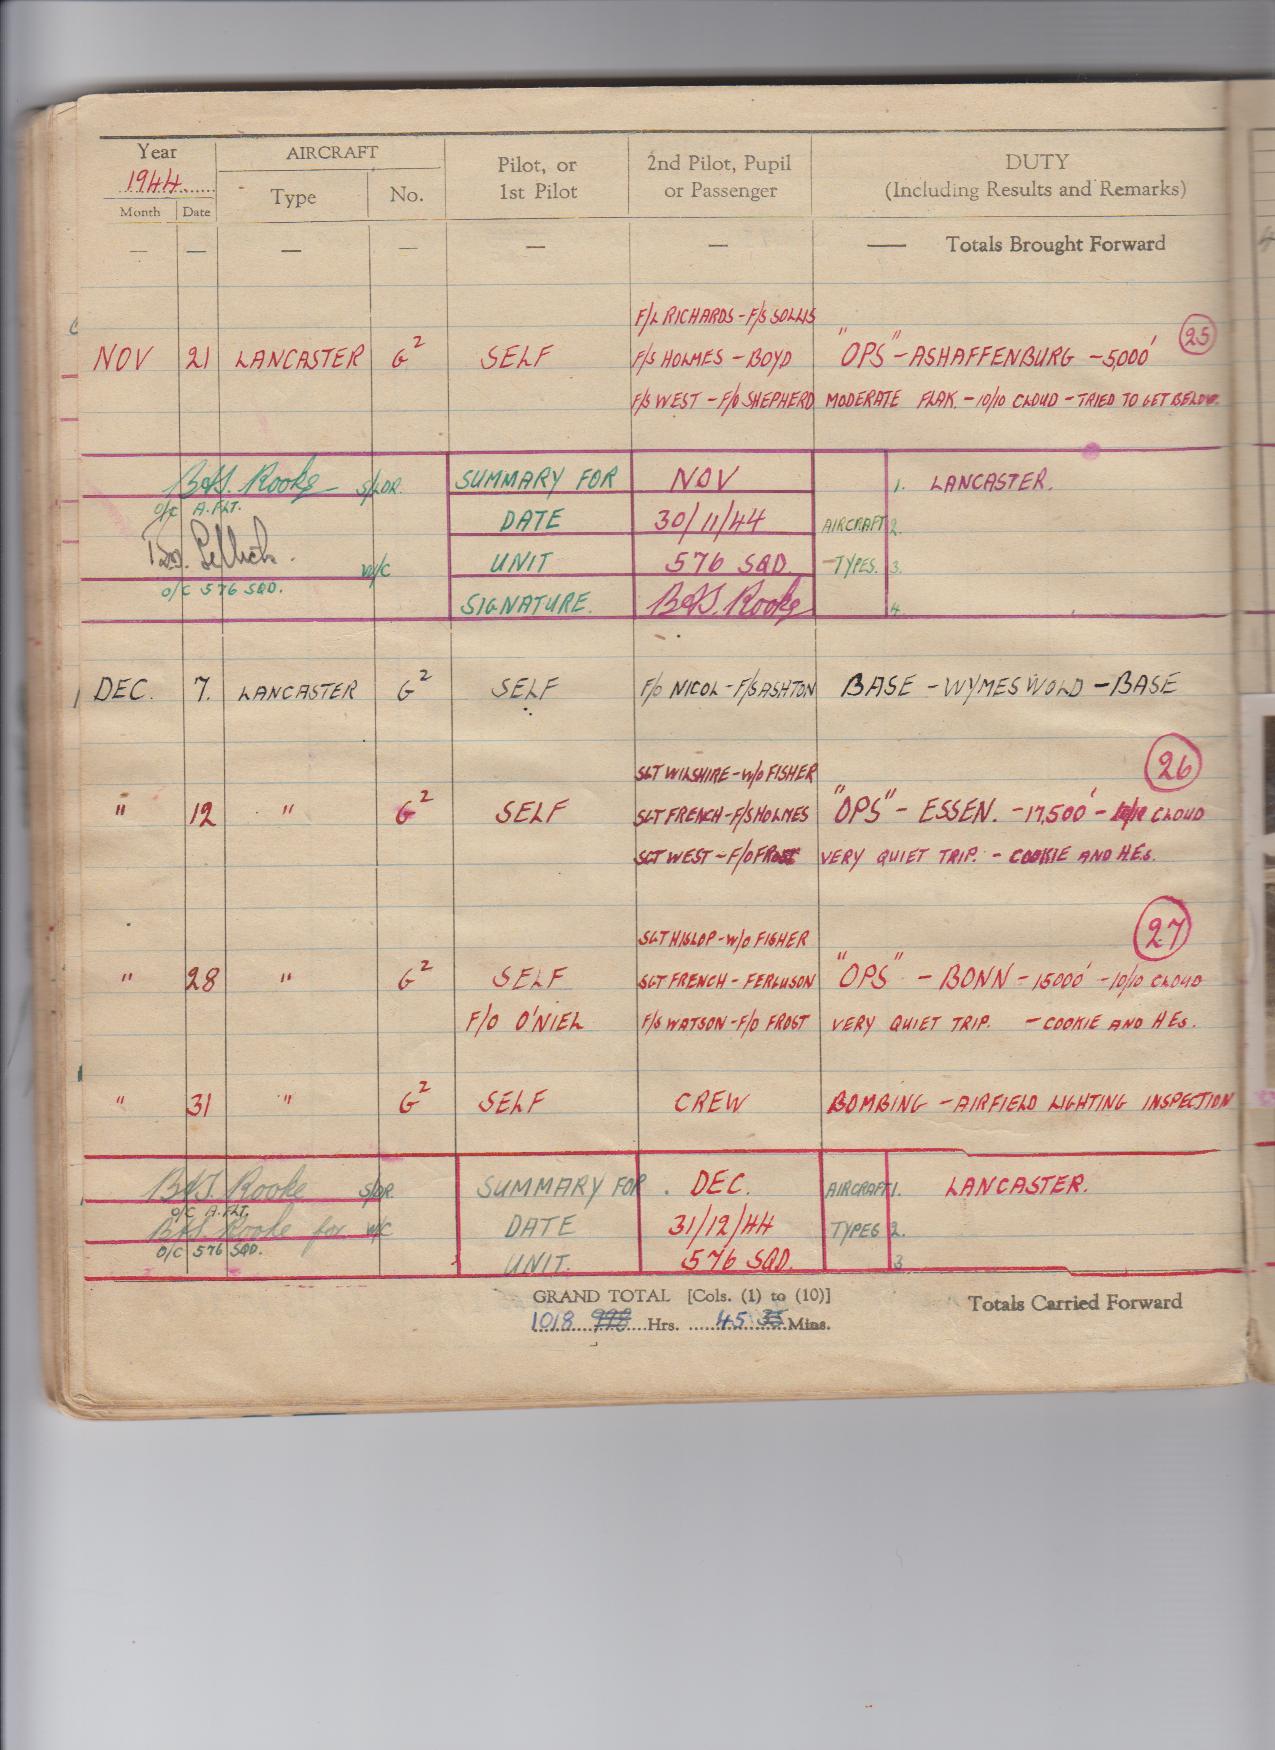 Year AIRCRAFT Pilot, or 2nd Pilot, Pupil DUTY
1944 Type No. 1st Pilot or Passenger (Including Results and Remarks)
Month Date
— — — — — — — Totals Brought Forward
F/L RICHARDS - F/S SOLLIS
NOV 21 LANCASTER G² SELF F/S HOLMES - BOYD "OPS" - ASHAFFENBURG - 5,000' 25
F/S WEST - F/O SHEPHERD MODERATE FLAK. - 10/10 CLOUD - TRIED TO GET BELOW.
B&S. Rooke S/LDR. SUMMARY FOR NOV 1. LANCASTER.
O/C A.FLT. DATE 30/11/44 AIRCRAFT 2.
W/C UNIT 576 SQD. TYPES. 3.
O/C 576 SQD. SIGNATURE. B&S. Rooke 4.
DEC. 7. LANCASTER G² SELF F/O NICOL - F/S ASHTON BASE - WYMESWOLD - BASE
SGT WILSHIRE - W/O FISHER 26
" 12 " G² SELF SGT FRENCH - F/S HOLMES "OPS" - ESSEN. - 17,500' - 10/10 CLOUD
SGT WEST - F/O FROST VERY QUIET TRIP. - COOKIE AND H.E.s.
SGT HISLOP - W/O FISHER 27
" 28 " G² SELF SGT FRENCH - FERGUSON "OPS" - BONN - 15000' - 10/10 CLOUD
F/O O'NIEL F/S WATSON - F/O FROST VERY QUIET TRIP. - COOKIE AND H.E.s.
" 31 " G² SELF CREW BOMBING - AIRFIELD LIGHTING INSPECTION
B&S. Rooke S/LDR. SUMMARY FOR. DEC. AIRCRAFT 1. LANCASTER.
O/C A.FLT.
B&S Rooke for W/C DATE 31/12/44 TYPES 2.
O/C 576 SQD. UNIT. 576 SQD. 3
GRAND TOTAL [Cols. (1) to (10)] Totals Carried Forward
1018 998 Hrs. 45 35 Mins.